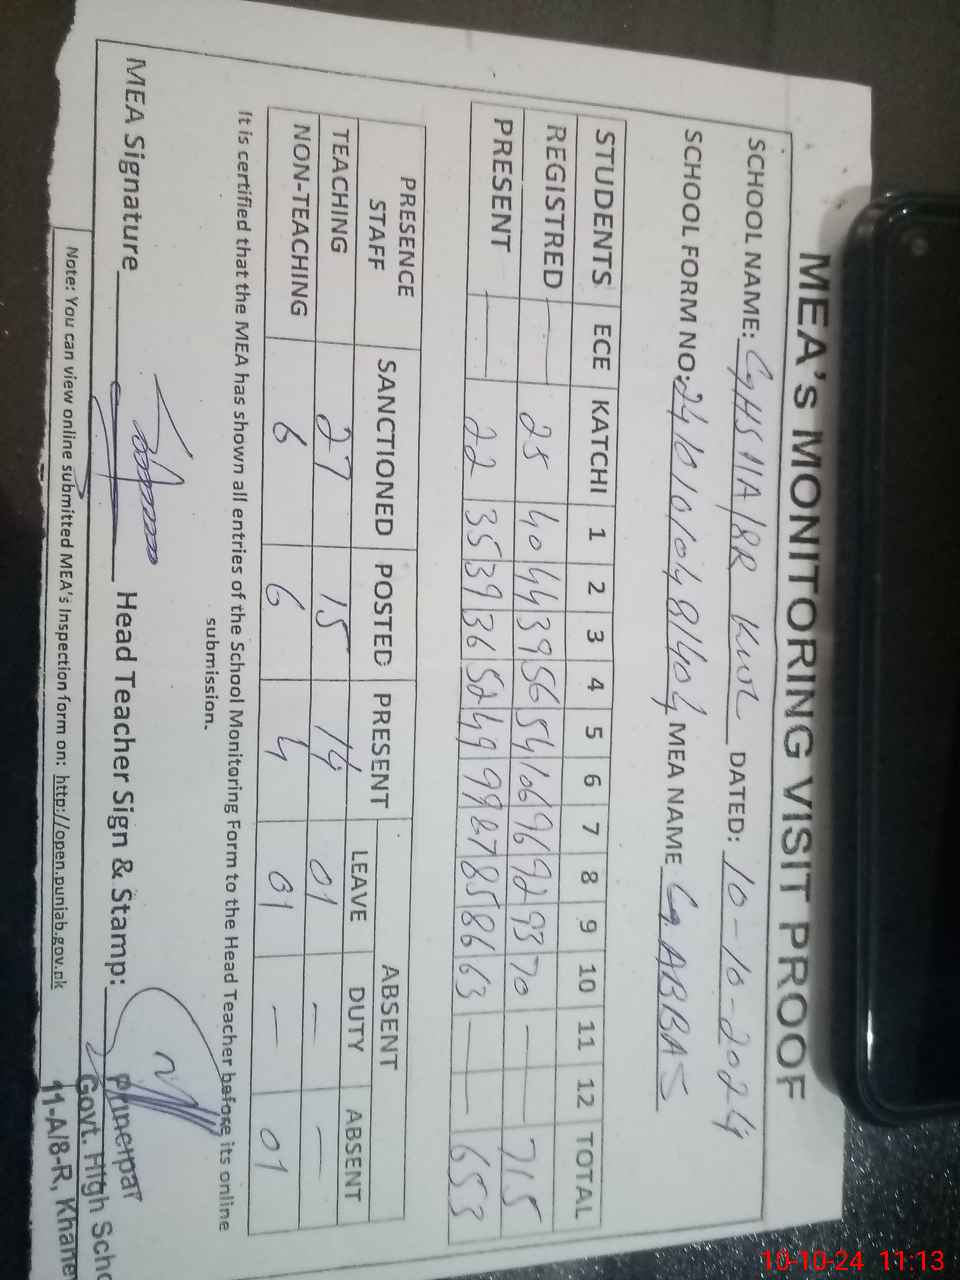 MEA's MONITORING VISIT PROOF
SCHOOL NAME: GHS 11A/8R KWL DATED: 10-10-2024
SCHOOL FORM NO: 24101010481404 MEA NAME G. ABBAS
STUDENTS ECE KATCHI 1 2 3 4 5 6 7 8 9 10 11 12 TOTAL
REGISTRED — 25 40 44 39 56 54 106 96 92 93 70 — — 715
PRESENT — 22 35 39 36 52 49 99 87 85 86 63 — — 653
PRESENCE STAFF SANCTIONED POSTED PRESENT ABSENT
LEAVE DUTY ABSENT
TEACHING 27 15 14 01 — —
NON-TEACHING 6 6 4 01 — 01
It is certified that the MEA has shown all entries of the School Monitoring Form to the Head Teacher before its online
submission.
MEA Signature Head Teacher Sign & Stamp:
Principal
Govt. High Scho
11-A/8-R, Khane
Note: You can view online submitted MEA's Inspection form on: http://open.punjab.gov.pk
10-10-24 11:13